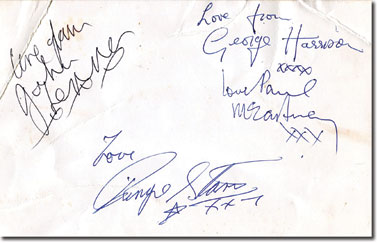 love from
John
Lennon
Love from
George Harrison
xxxx
love Paul
McCartney
xxx
Love
Ringo Starr
xxx